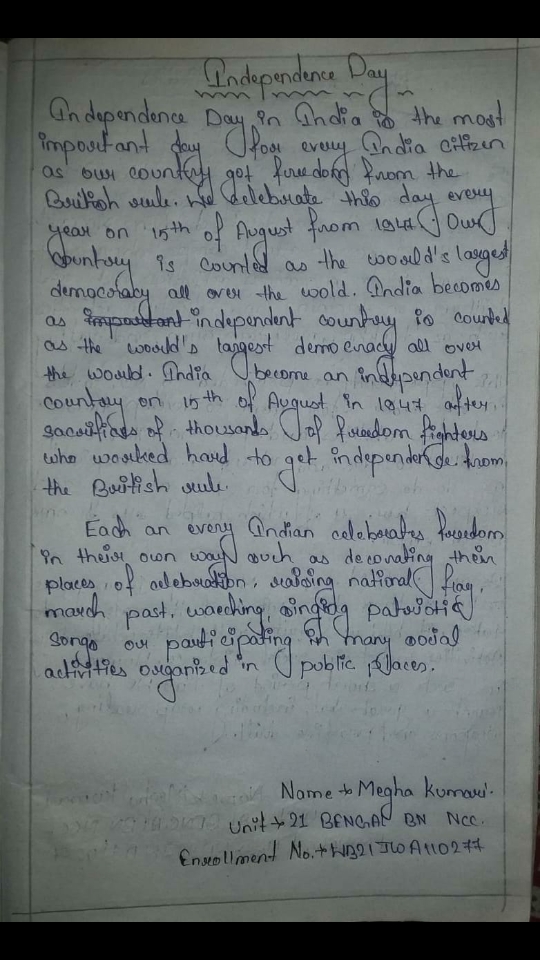 Independence Day
Independence Day in India is the most
important day for every India citizen
as our country got freedom from the
British rule. We celebrate this day every
year on 15th of August from 1947. Our
Country is counted as the world's largest
democracy all over the wold. India becomes
as important independent country is counted
as the world's largest democracy all over
the world. India become an independent
country on 15th of August in 1947 after
sacrifices of thousands of freedom fighters
who worked hard to get independence from
the British rule
Each an every Indian celebrates freedom
in their own way such as decorating their
places of celebration, raising national flag,
march past, singing patriotic
songs or participating in many social
activities organized in public places.
Name → Megha Kumari.
Unit → 21 BENGAL BN NCC.
Enrollment No. → WB21JWA110277